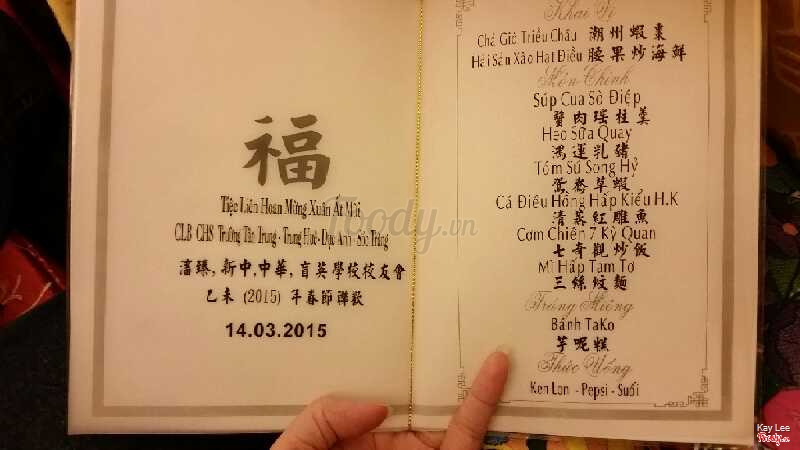 福
Tiệc Liên Hoan Mừng Xuân Ất Mùi
CLB CHS Trường Tân Trung - Trung Huê - Dục Anh - Sóc Trăng
滀臻, 新中, 中華, 育英學校校友會
乙未 (2015) 年春節聯歡
14.03.2015
Khai Vị
Chả Giò Triều Châu 潮州蝦棗
Hải Sản Xào Hạt Điều 腰果炒海鮮
Món Chính
Súp Cua Sò Điệp
蟹肉瑤柱羹
Heo Sữa Quay
鴻運乳豬
Tôm Sú Song Hỷ
鴛鴦草蝦
Cá Điêu Hồng Hấp Kiểu H.K
清蒸紅鵰魚
Cơm Chiên 7 Kỳ Quan
七奇觀炒飯
Mì Hấp Tam Tơ
三絲炆麵
Tráng Miệng
Bánh TaKo
芋呢糕
Thức Uống
Ken Lon - Pepsi - Suối
Foody.vn
Kay Lee
Foody.vn